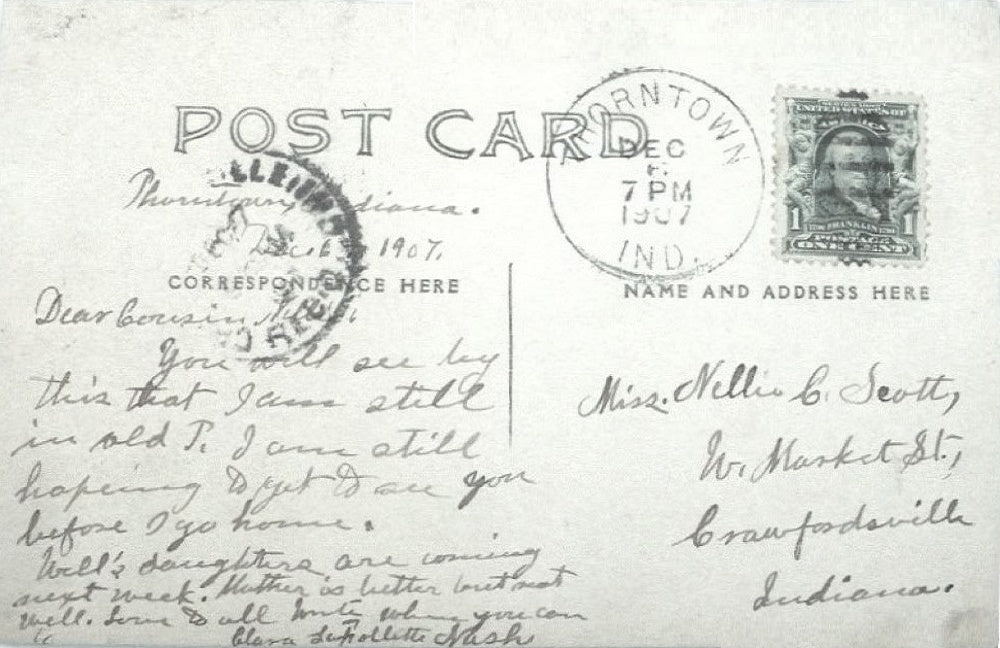 POST CARD
THORNTOWN
DEC
6
7 PM
1907
IND.
UNITED STATES OF
AMERICA
1 FRANKLIN 1
ONE CENT
Thorntown, Indiana.
Dec. 6, 1907.
CORRESPONDENCE HERE
NAME AND ADDRESS HERE
REC'D
Dear Cousin
You will see by
this that I am still
in old T. I am still
hopeing to get to see you
before I go home.
Will's daughters are coming
next week. Mother is better but not
well. Love to all Write when you can
Clara LaFollette Nash
Miss. Nellie C. Scott,
W. Market St.,
Crawfordsville
Indiana.